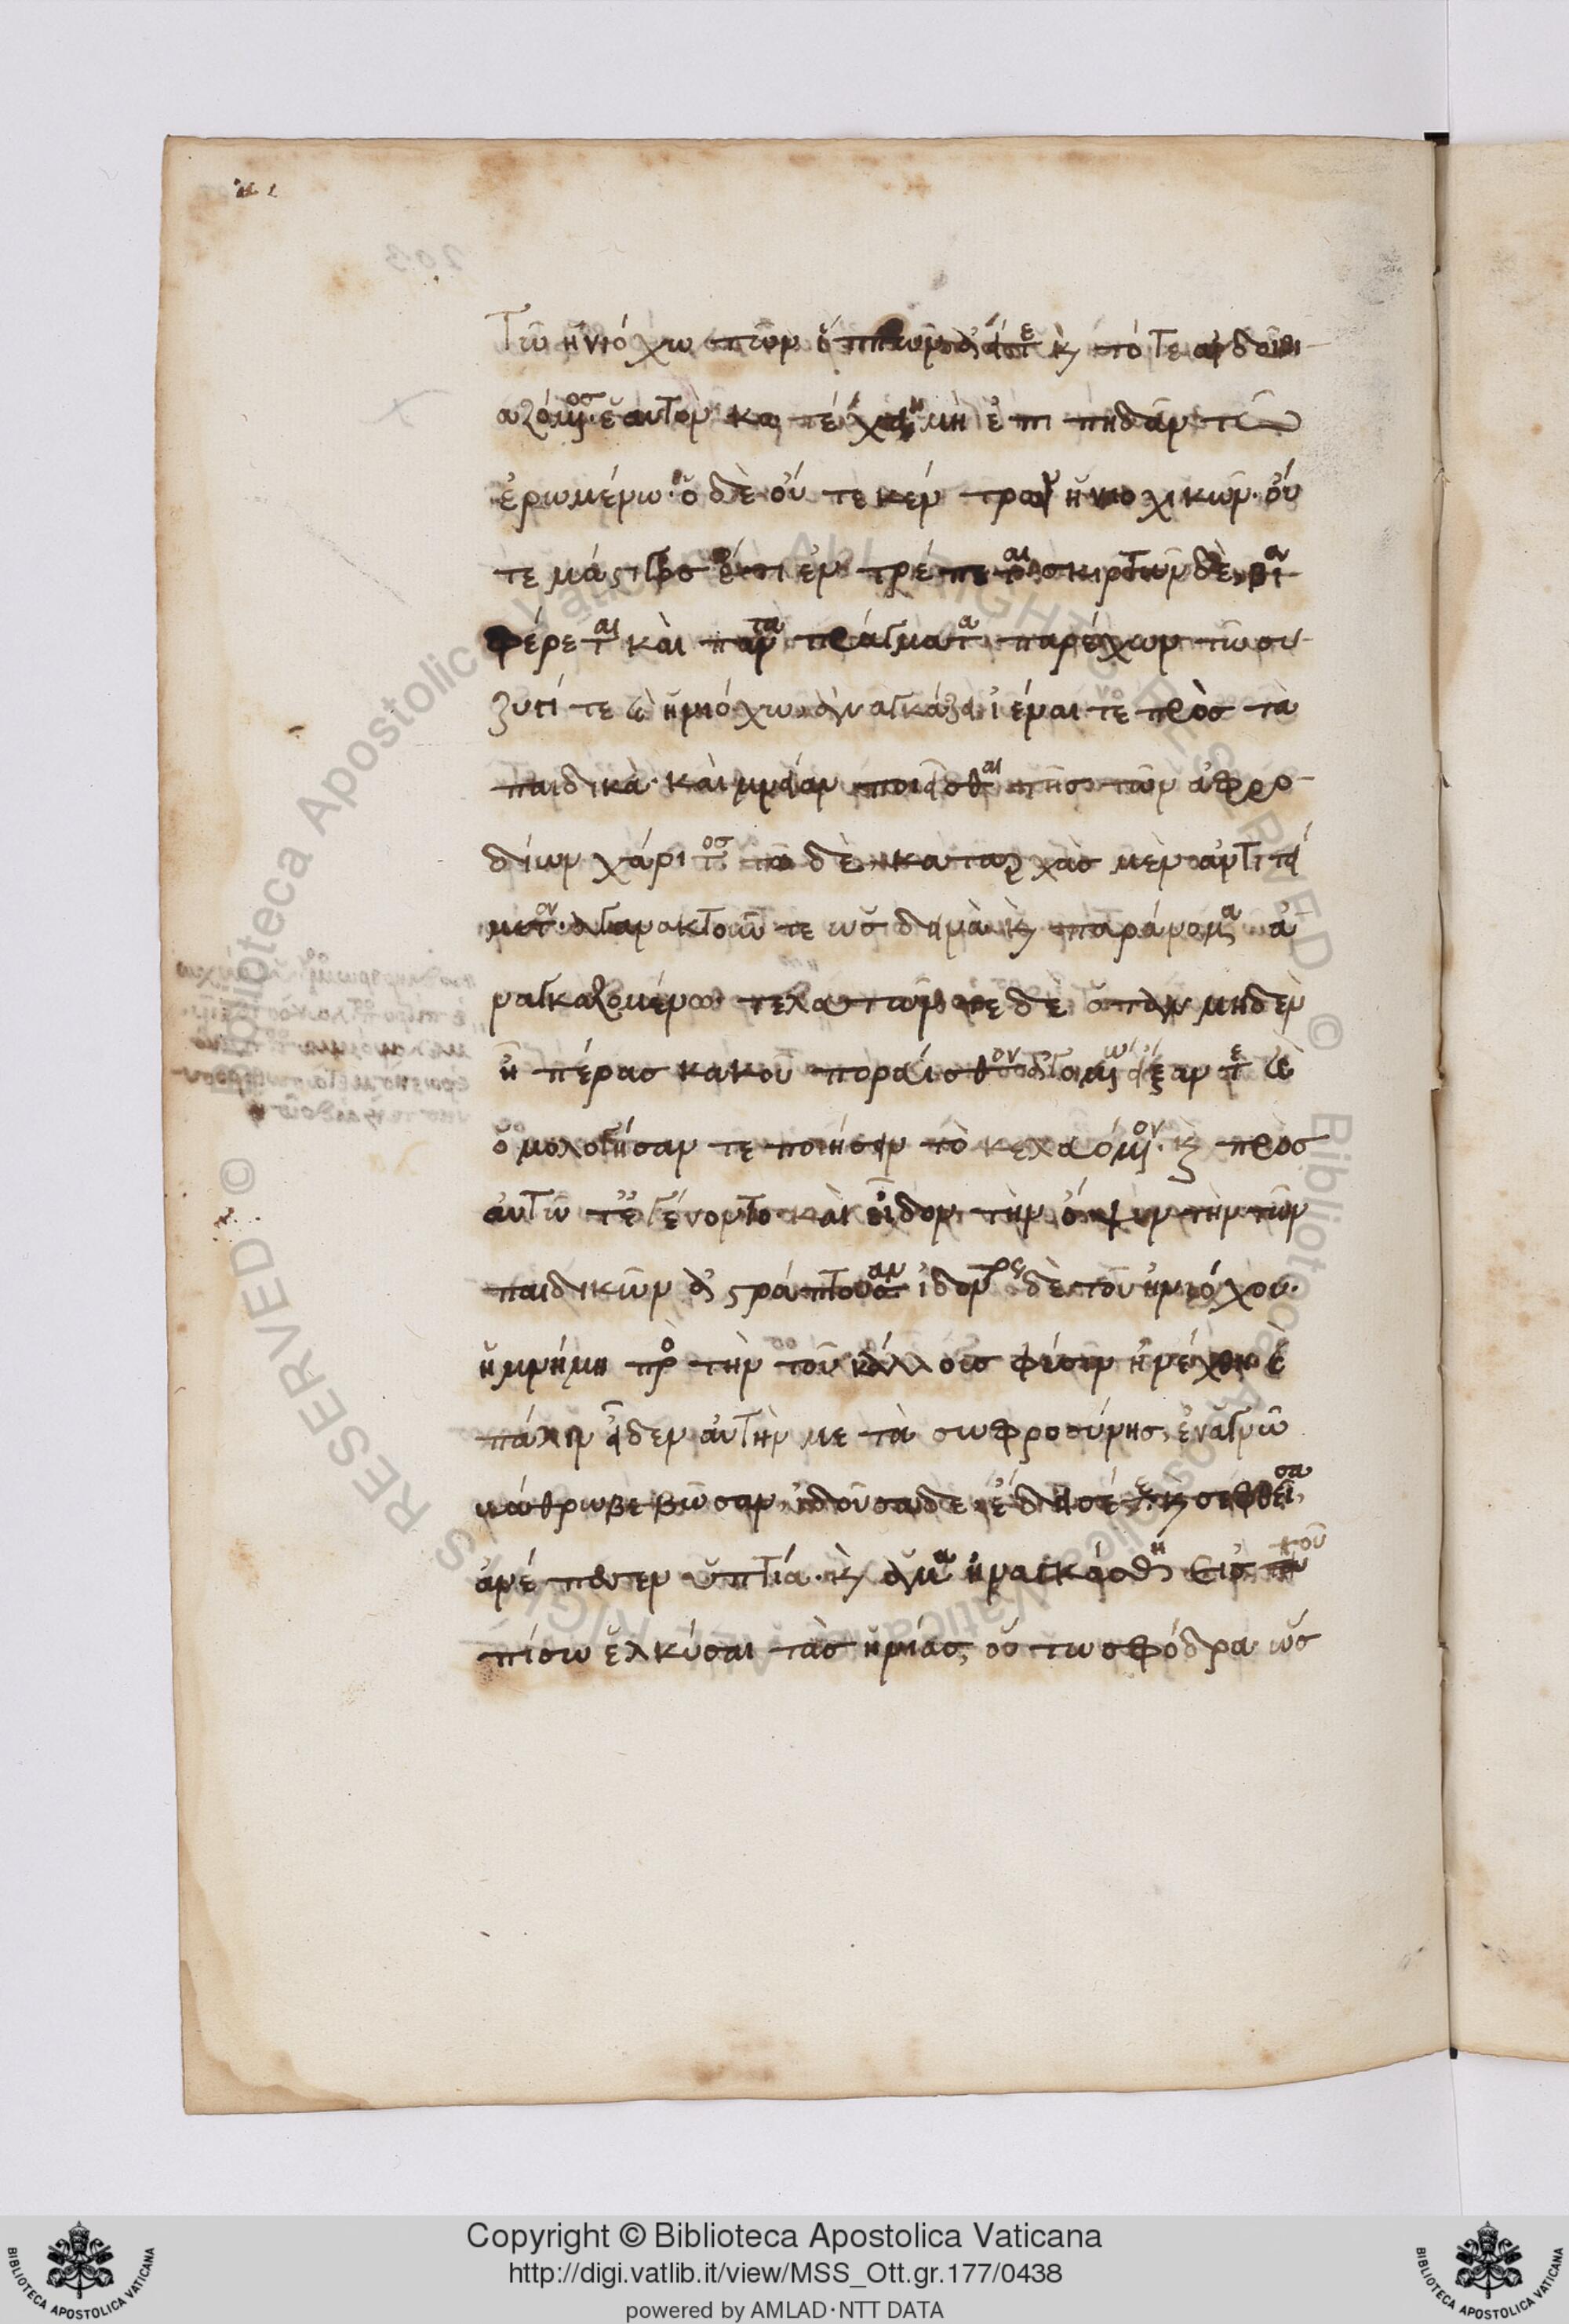 Τῶ ἡνιόχω τῶν ἵππων ἀεί τε κ̀ τότε αἰδοῖ βι
αζόμενος ἑαυτὸν κατέχει μὴ ἐπιπηδᾶν τῶ
ἐρωμένω· ὁ δὲ οὔτε κέντρων ἡνιοχικῶν· οὔ
τε μάστιγος ἔτι ἐντρέπεται σκιρτῶν δὲ, βίᾳ
φέρεται καὶ πάντα πράγματα παρέχων τῶ συ
ζυγί τε κ̀ ἡνιόχω ἀναγκάζει ἰέναι τε πρὸς τὰ
παιδικὰ· καὶ μνείαν ποιεῖσθαι τῆς τῶν ἀφρο
δισίων χάριτος τὼ δὲ κατ᾽ ἀρχὰς μὲν ἀντιτεί
νετον· ἀγανακτοῦντε ὡς δεινὰ κ̀ παράνομα ἀ
ναγκαζομένω· τελευτῶντε δὲ ὅταν μηδὲν
ἦ πέρας κακοῦ πορεύεσθον ἀγομένω εἴξαντε κ̀
ὁμολογήσαντε ποιήσειν τὸ κελευόμενον· κ̀ πρὸς
αὐτῶ τ᾽ ἐγένοντο καὶ εἶδον τὴν ὄψιν τὴν τῶν
παιδικῶν ἀστράπτουσαν ἰδόντος δὲ τοῦ ἡνιόχου·
ἡ μνήμη πρὸς τὴν τοῦ κάλλους φύσιν ἠνέχθη κ̀
πάλιν εἶδεν αὐτὴν μετὰ σωφροσύνης, ἐν ἁγνῶ
βάθρω βεβῶσαν ἰδοῦσα δὲ ἔδεισέ τε κ̀ σεφθεῖσα
ἀνέπεσεν ὑπτία· κ̀ ἅμα ἠναγκάσθη εἰς τοὐ
πίσω ἑλκύσαι τὰς ἡνίας, οὕτω σφόδρα ὡς
Copyright © Biblioteca Apostolica Vaticana
http://digi.vatlib.it/view/MSS_Ott.gr.177/0438
powered by AMLAD·NTT DATA